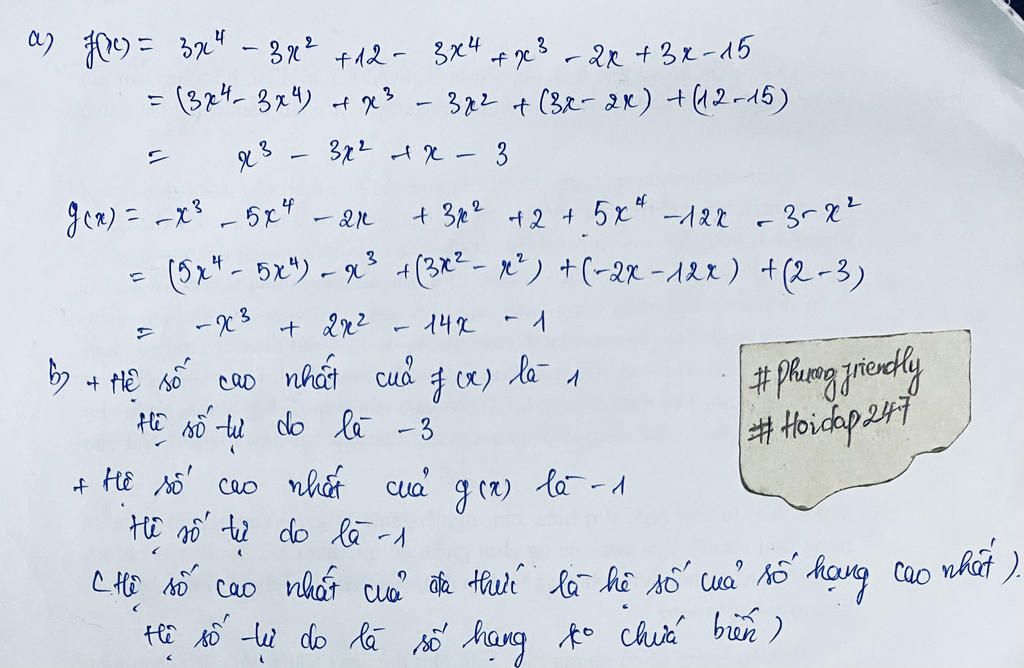 a) f(x) = 3x⁴ - 3x² + 12 - 3x⁴ + x³ - 2x + 3x - 15
= (3x⁴ - 3x⁴) + x³ - 3x² + (3x - 2x) + (12 - 15)
= x³ - 3x² + x - 3
g(x) = -x³ - 5x⁴ - 2x + 3x² + 2 + 5x⁴ - 12x - 3 - x²
= (5x⁴ - 5x⁴) - x³ + (3x² - x²) + (-2x - 12x) + (2 - 3)
= -x³ + 2x² - 14x - 1
b) + Hệ số cao nhất cuả f(x) là 1
Hệ số tự do là -3
+ Hệ số cao nhất cuả g(x) là -1
Hệ số tự do là -1
(Hệ số cao nhất cuả đa thức là hệ số cuả số hạng cao nhất).
Hệ số tự do là số hạng ko chứa biến)
# Phuongfriendly
# Hoidap247